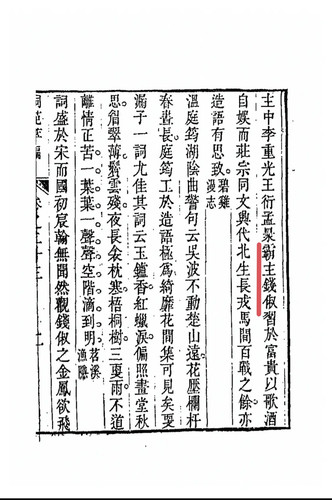 主中李重光王衍孟昶霸主錢俶習於富貴以歌酒
自娛而莊宗同文興代北生長戎馬間百戰之餘亦
造語有思致碧雞漫志
溫庭筠湖陰曲警句云吳波不動楚山遠花壓欄杆
春晝長庭筠工於造語極爲綺靡花間集可見矣更
漏子一詞尤佳其詞云玉鑪香紅蠟淚偏照畫堂秋
思眉翠薄鬢雲殘夜長衾枕寒梧桐樹三更雨不道
離情正苦一葉葉一聲聲空階滴到明苕溪漁隱
詞盛於宋而國初宸翰無聞然觀錢俶之金鳳欲飛